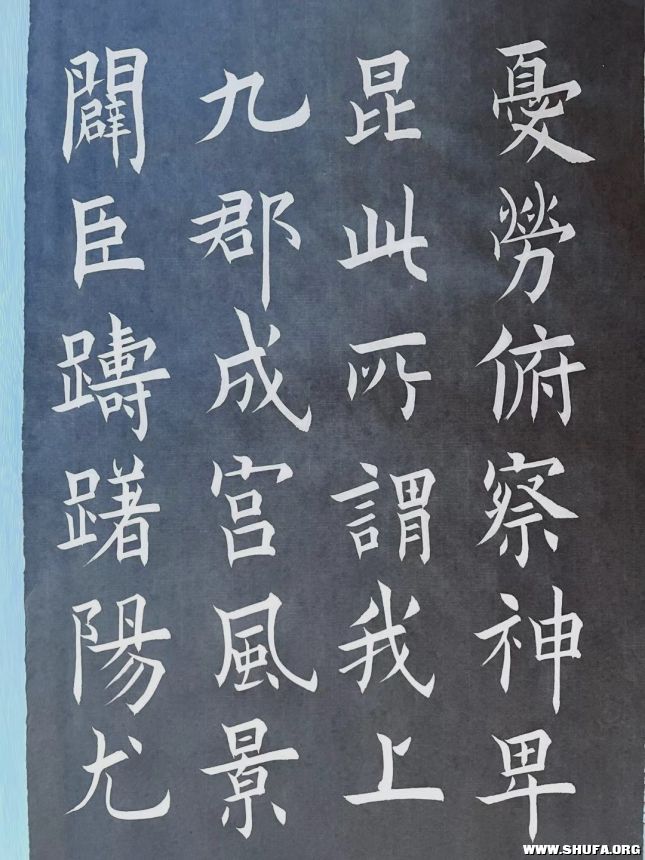 憂勞俯察神卑
昆此所謂我上
九郡成宫風景
闢臣躊躇陽尤
WWW.SHUFA.ORG